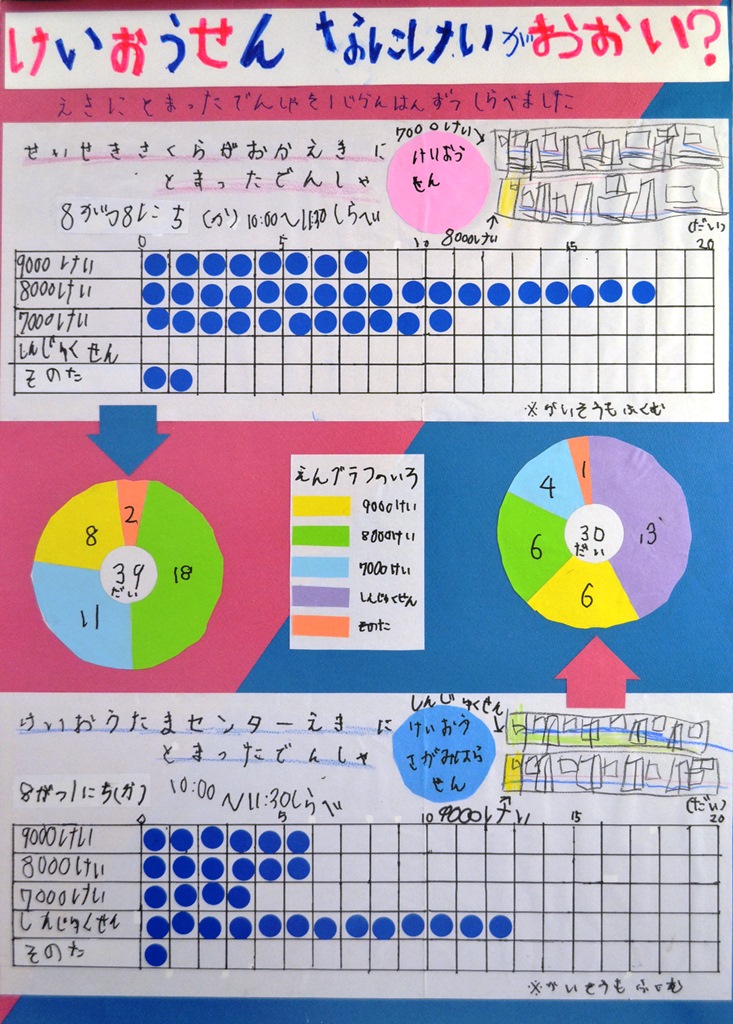 けいおうせん なにけいがおおい?
えきにとまったでんしゃを1じかんはんずつしらべました
せいせきさくらがおかえきに
とまったでんしゃ
8がつ8にち(か)10:00~11:30しらべ
けいおう
せん
7000けい
8000けい
(だい)
0 5 10 15 20
9000けい
8000けい
7000けい
しんじゅくせん
そのた
※かいそうもふくむ
2
8
18
11
39
だい
えんグラフのいろ
9000けい
8000けい
7000けい
しんじゅくせん
そのた
1
4
13
6
6
30
だい
けいおうたまセンターえきに
とまったでんしゃ
8がつ1にち(か)
10:00
~11:30しらべ
けいおう
さがみはら
せん
しんじゅくせん
9000けい
(だい)
0 5 10 15 20
9000けい
8000けい
7000けい
しんじゅくせん
そのた
※かいそうもふくむ